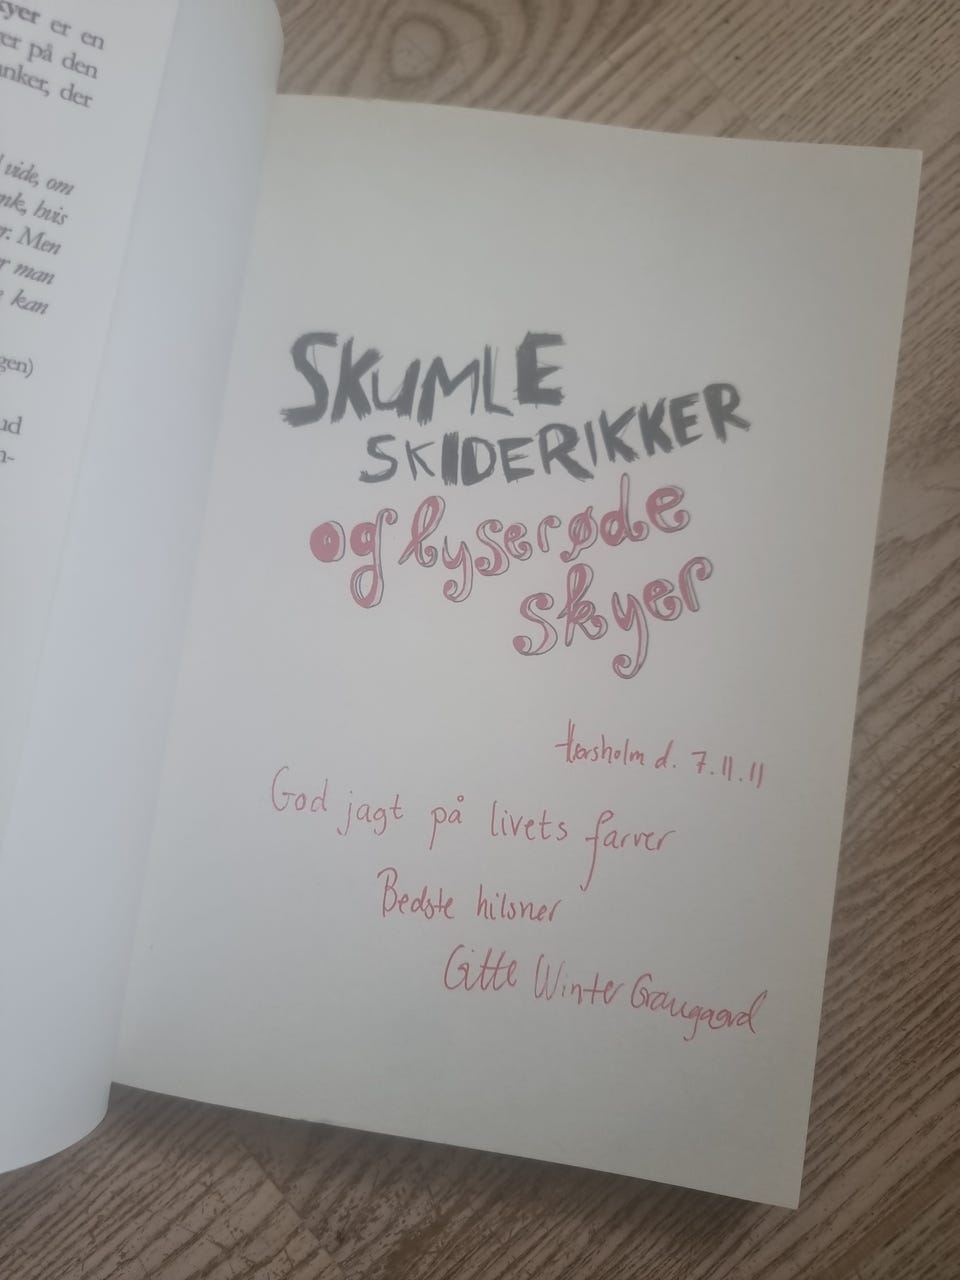 kyer er en
er på den
anker, der
vide, om
nk, hvis
r. Men
r man
kan
gen)
ud
n-
SKUMLE
SKIDERIKKER
og lyserøde
skyer
Hørsholm d. 7.11.11
God jagt på livets farver
Bedste hilsner
Gitte Winter Graugaard